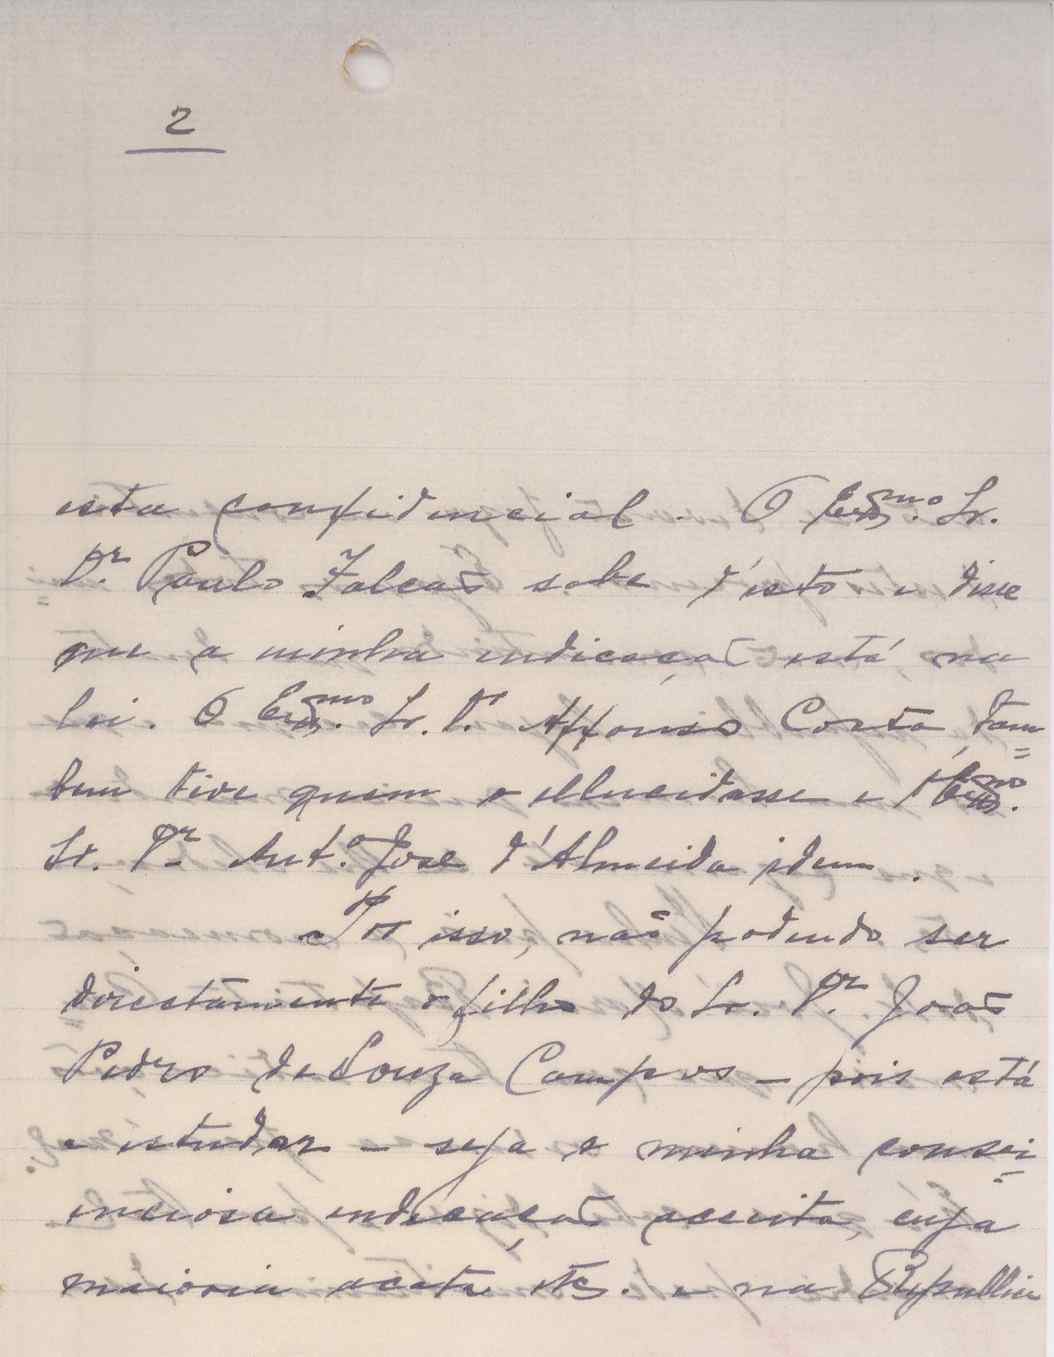 2
esta confidencial. O Exmo. Sr.
Dr. Paulo Falcaõ sabe d'isto e disse
que a minha indicaçaõ está na
lei. O Exmo. Sr. Dr. Affonso Costa, tam=
bem tive quem o ellucidasse e o Exmo.
Sr. Dr. Ant.º José d'Almeida idem.
Por isso, naõ podendo ser
directamente o filho do Sr. Dr. Joaõ
Pedro de Souza Campos — pois está
a estudar — seja a minha consci=
enciosa indicaçaõ acceita, cuja
maioria acata etc. e na Republica